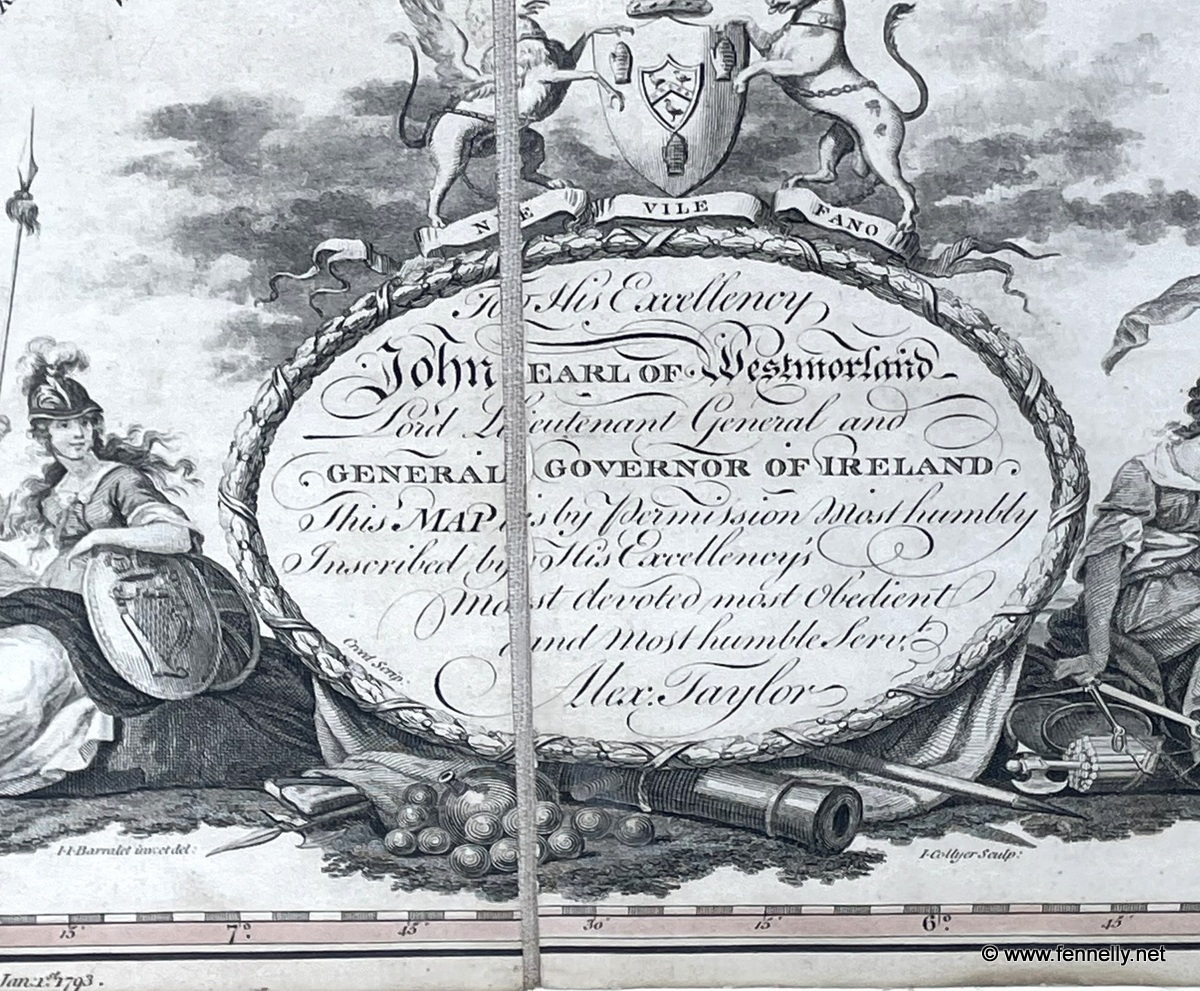 NE VILE FANO
To His Excellency
John EARL OF Westmorland
Lord Lieutenant General and
GENERAL GOVERNOR OF IRELAND
This MAP is by Permission Most humbly
Inscribed by His Excellency's
Most devoted most Obedient
and Most humble Servt.
Alex. Taylor
Creed Scrip:
I·I·Barralet inv et del:
I·Collyer Sculp:
15' 7° 45' 30' 15' 6° 45'
Jan: 1st. 1793.
© www.fennelly.net